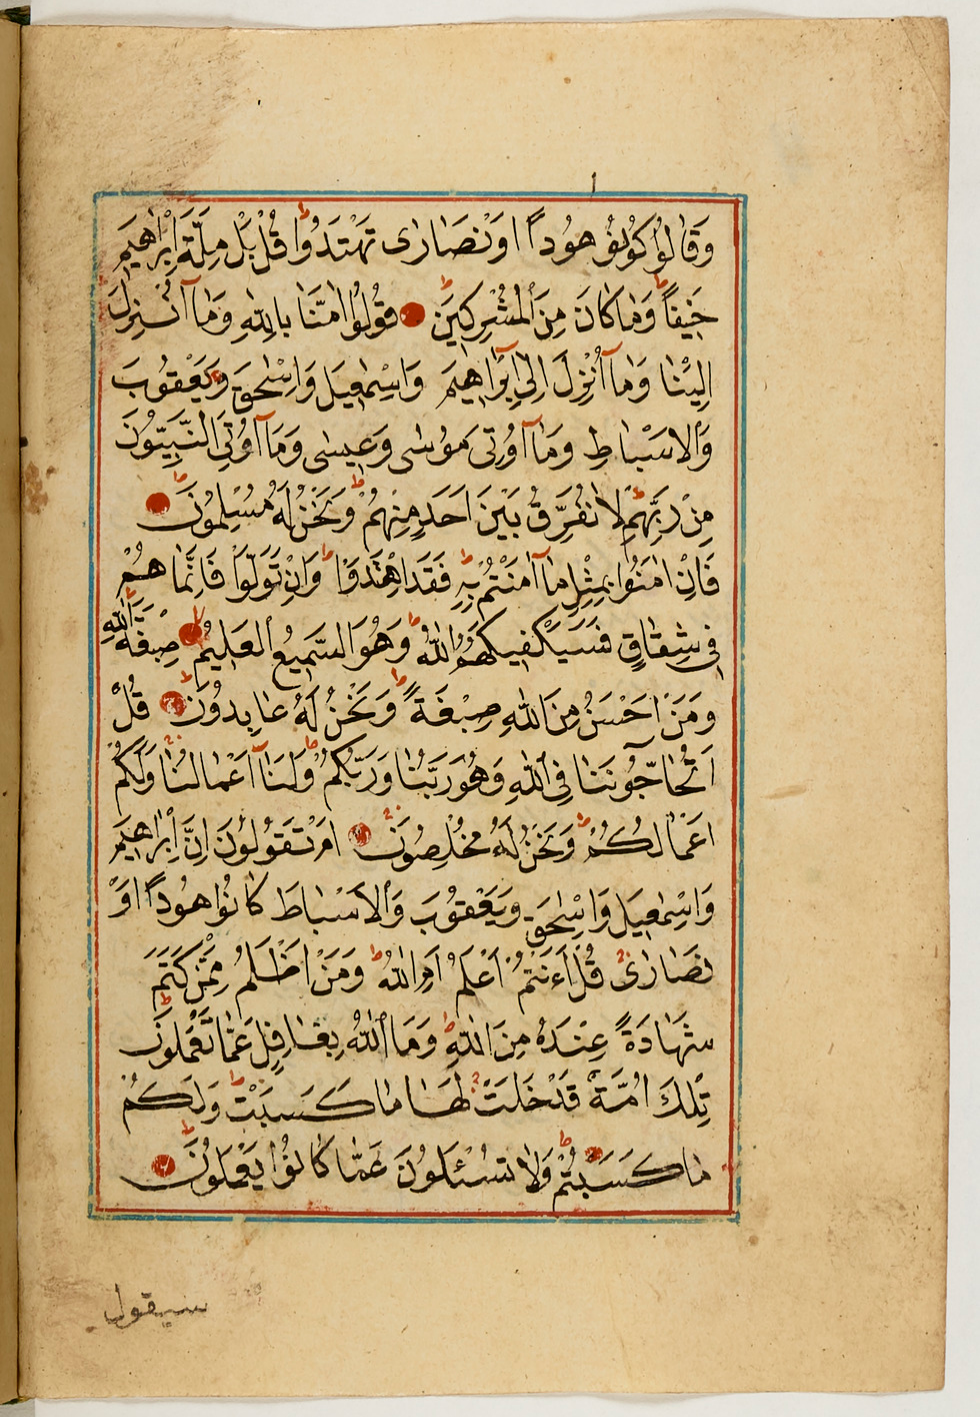 وَقَالُوا كُونُو هُودًا اَوْ نَصَارٰى تَهْتَدُوا قُلْ بَلْ مِلَّةَ اِبْرٰاهٖيمَ
حَنٖيفًا وَمَا كَانَ مِنَ الْمُشْرِكٖينَ قُولُوا اٰمَنَّا بِاللّٰهِ وَمَآ اُنْزِلَ
اِلَيْنَا وَمَآ اُنْزِلَ اِلٰٓى اِبْرٰاهٖيمَ وَاِسْمٰعٖيلَ وَاِسْحٰقَ وَيَعْقُوبَ
وَالْاَسْبَاطِ وَمَآ اُوتِىَ مُوسٰى وَعٖيسٰى وَمَآ اُوتِىَ النَّبِيُّونَ
مِنْ رَبِّهِمْ لَا نُفَرِّقُ بَيْنَ اَحَدٍ مِنْهُمْ وَنَحْنُ لَهُ مُسْلِمُونَ
فَاِنْ اٰمَنُوا بِمِثْلِ مَآ اٰمَنْتُمْ بِهٖ فَقَدِ اهْتَدَوْا وَاِنْ تَوَلَّوْا فَاِنَّمَا هُمْ
فٖى شِقَاقٍ فَسَيَكْفٖيكَهُمُ اللّٰهُ وَهُوَ السَّمٖيعُ الْعَلٖيمُ صِبْغَةَ اللّٰهِ
وَمَنْ اَحْسَنُ مِنَ اللّٰهِ صِبْغَةً وَنَحْنُ لَهُ عَابِدُونَ قُلْ
اَتُحَآجُّونَنَا فِى اللّٰهِ وَهُوَ رَبُّنَا وَرَبُّكُمْ وَلَنَآ اَعْمَالُنَا وَلَكُمْ
اَعْمَالُكُمْ وَنَحْنُ لَهُ مُخْلِصُونَ اَمْ تَقُولُونَ اِنَّ اِبْرٰاهٖيمَ
وَاِسْمٰعٖيلَ وَاِسْحٰقَ وَيَعْقُوبَ وَالْاَسْبَاطَ كَانُوا هُودًا اَوْ
نَصَارٰى قُلْ ءَاَنْتُمْ اَعْلَمُ اَمِ اللّٰهُ وَمَنْ اَظْلَمُ مِمَّنْ كَتَمَ
شَهَادَةً عِنْدَهُ مِنَ اللّٰهِ وَمَا اللّٰهُ بِغَافِلٍ عَمَّا تَعْمَلُونَ
تِلْكَ اُمَّةٌ قَدْ خَلَتْ لَهَا مَا كَسَبَتْ وَلَكُمْ
مَا كَسَبْتُمْ وَلَا تُسْئَلُونَ عَمَّا كَانُوا يَعْمَلُونَ
سيقول